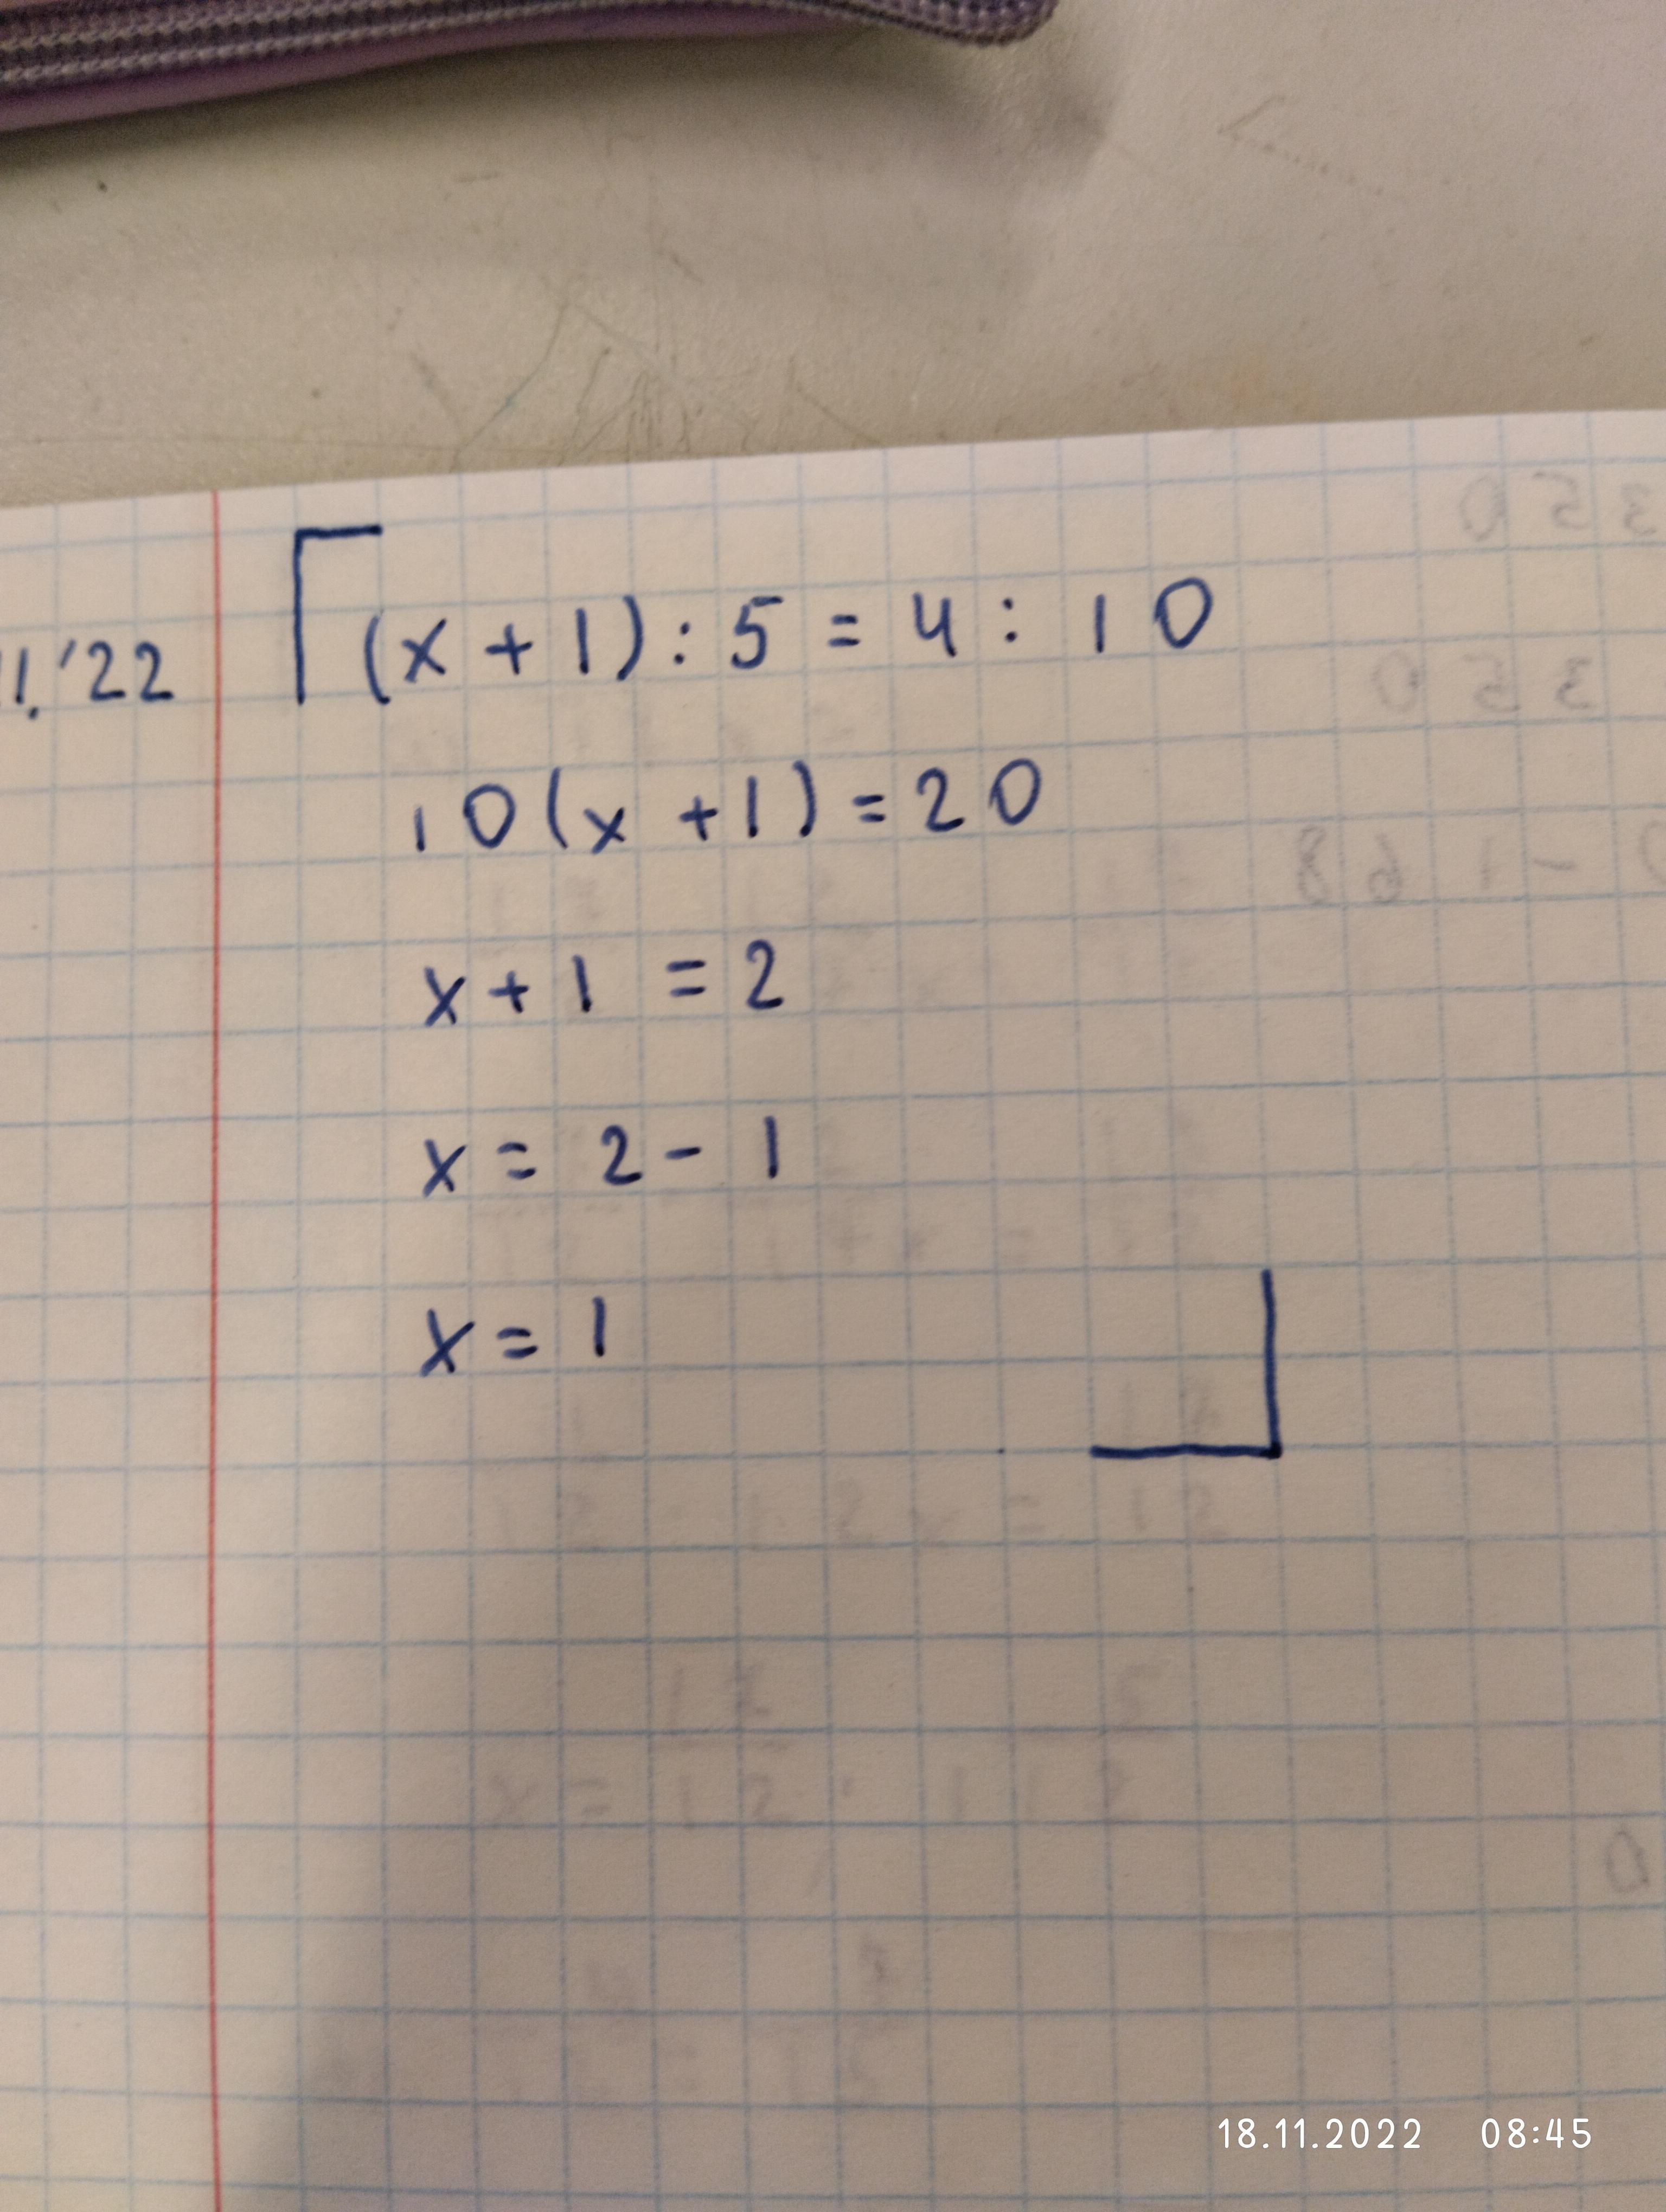 11.'22
(x+1):5=4:10
10(x+1)=20
x+1=2
x=2-1
x=1
18.11.2022 08:45